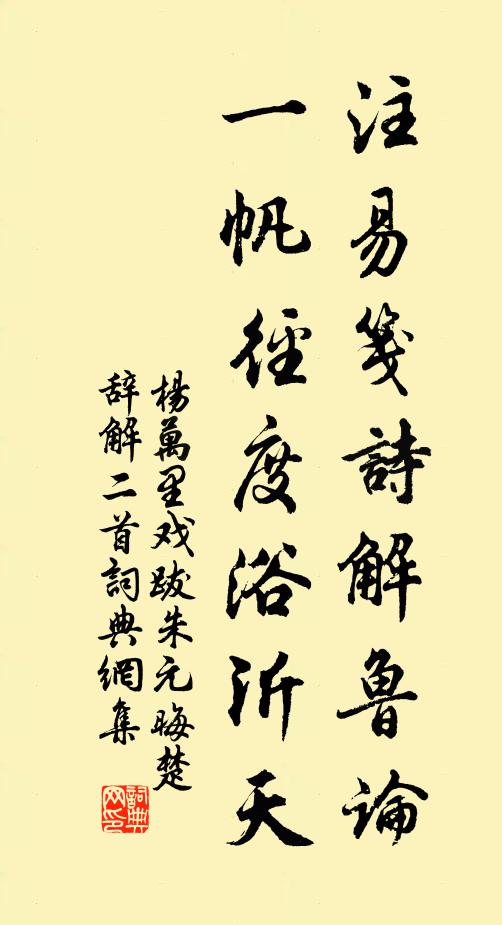 注易箋詩解魯論
一帆徑度浴沂天
楊萬里戏跋朱元晦楚
辞解二首詞典網集
詞典
网印